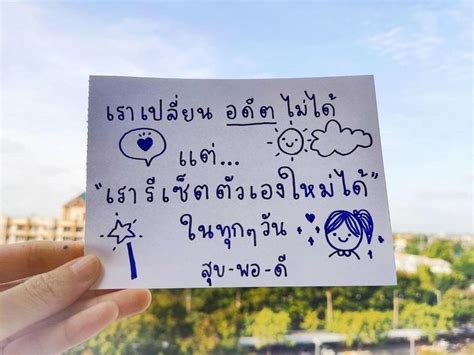 เราเปลี่ยน อดีต ไม่ได้
แต่...
"เรารีเซ็ตตัวเองใหม่ได้"
ในทุกๆวัน
สุข-พอ-ดี